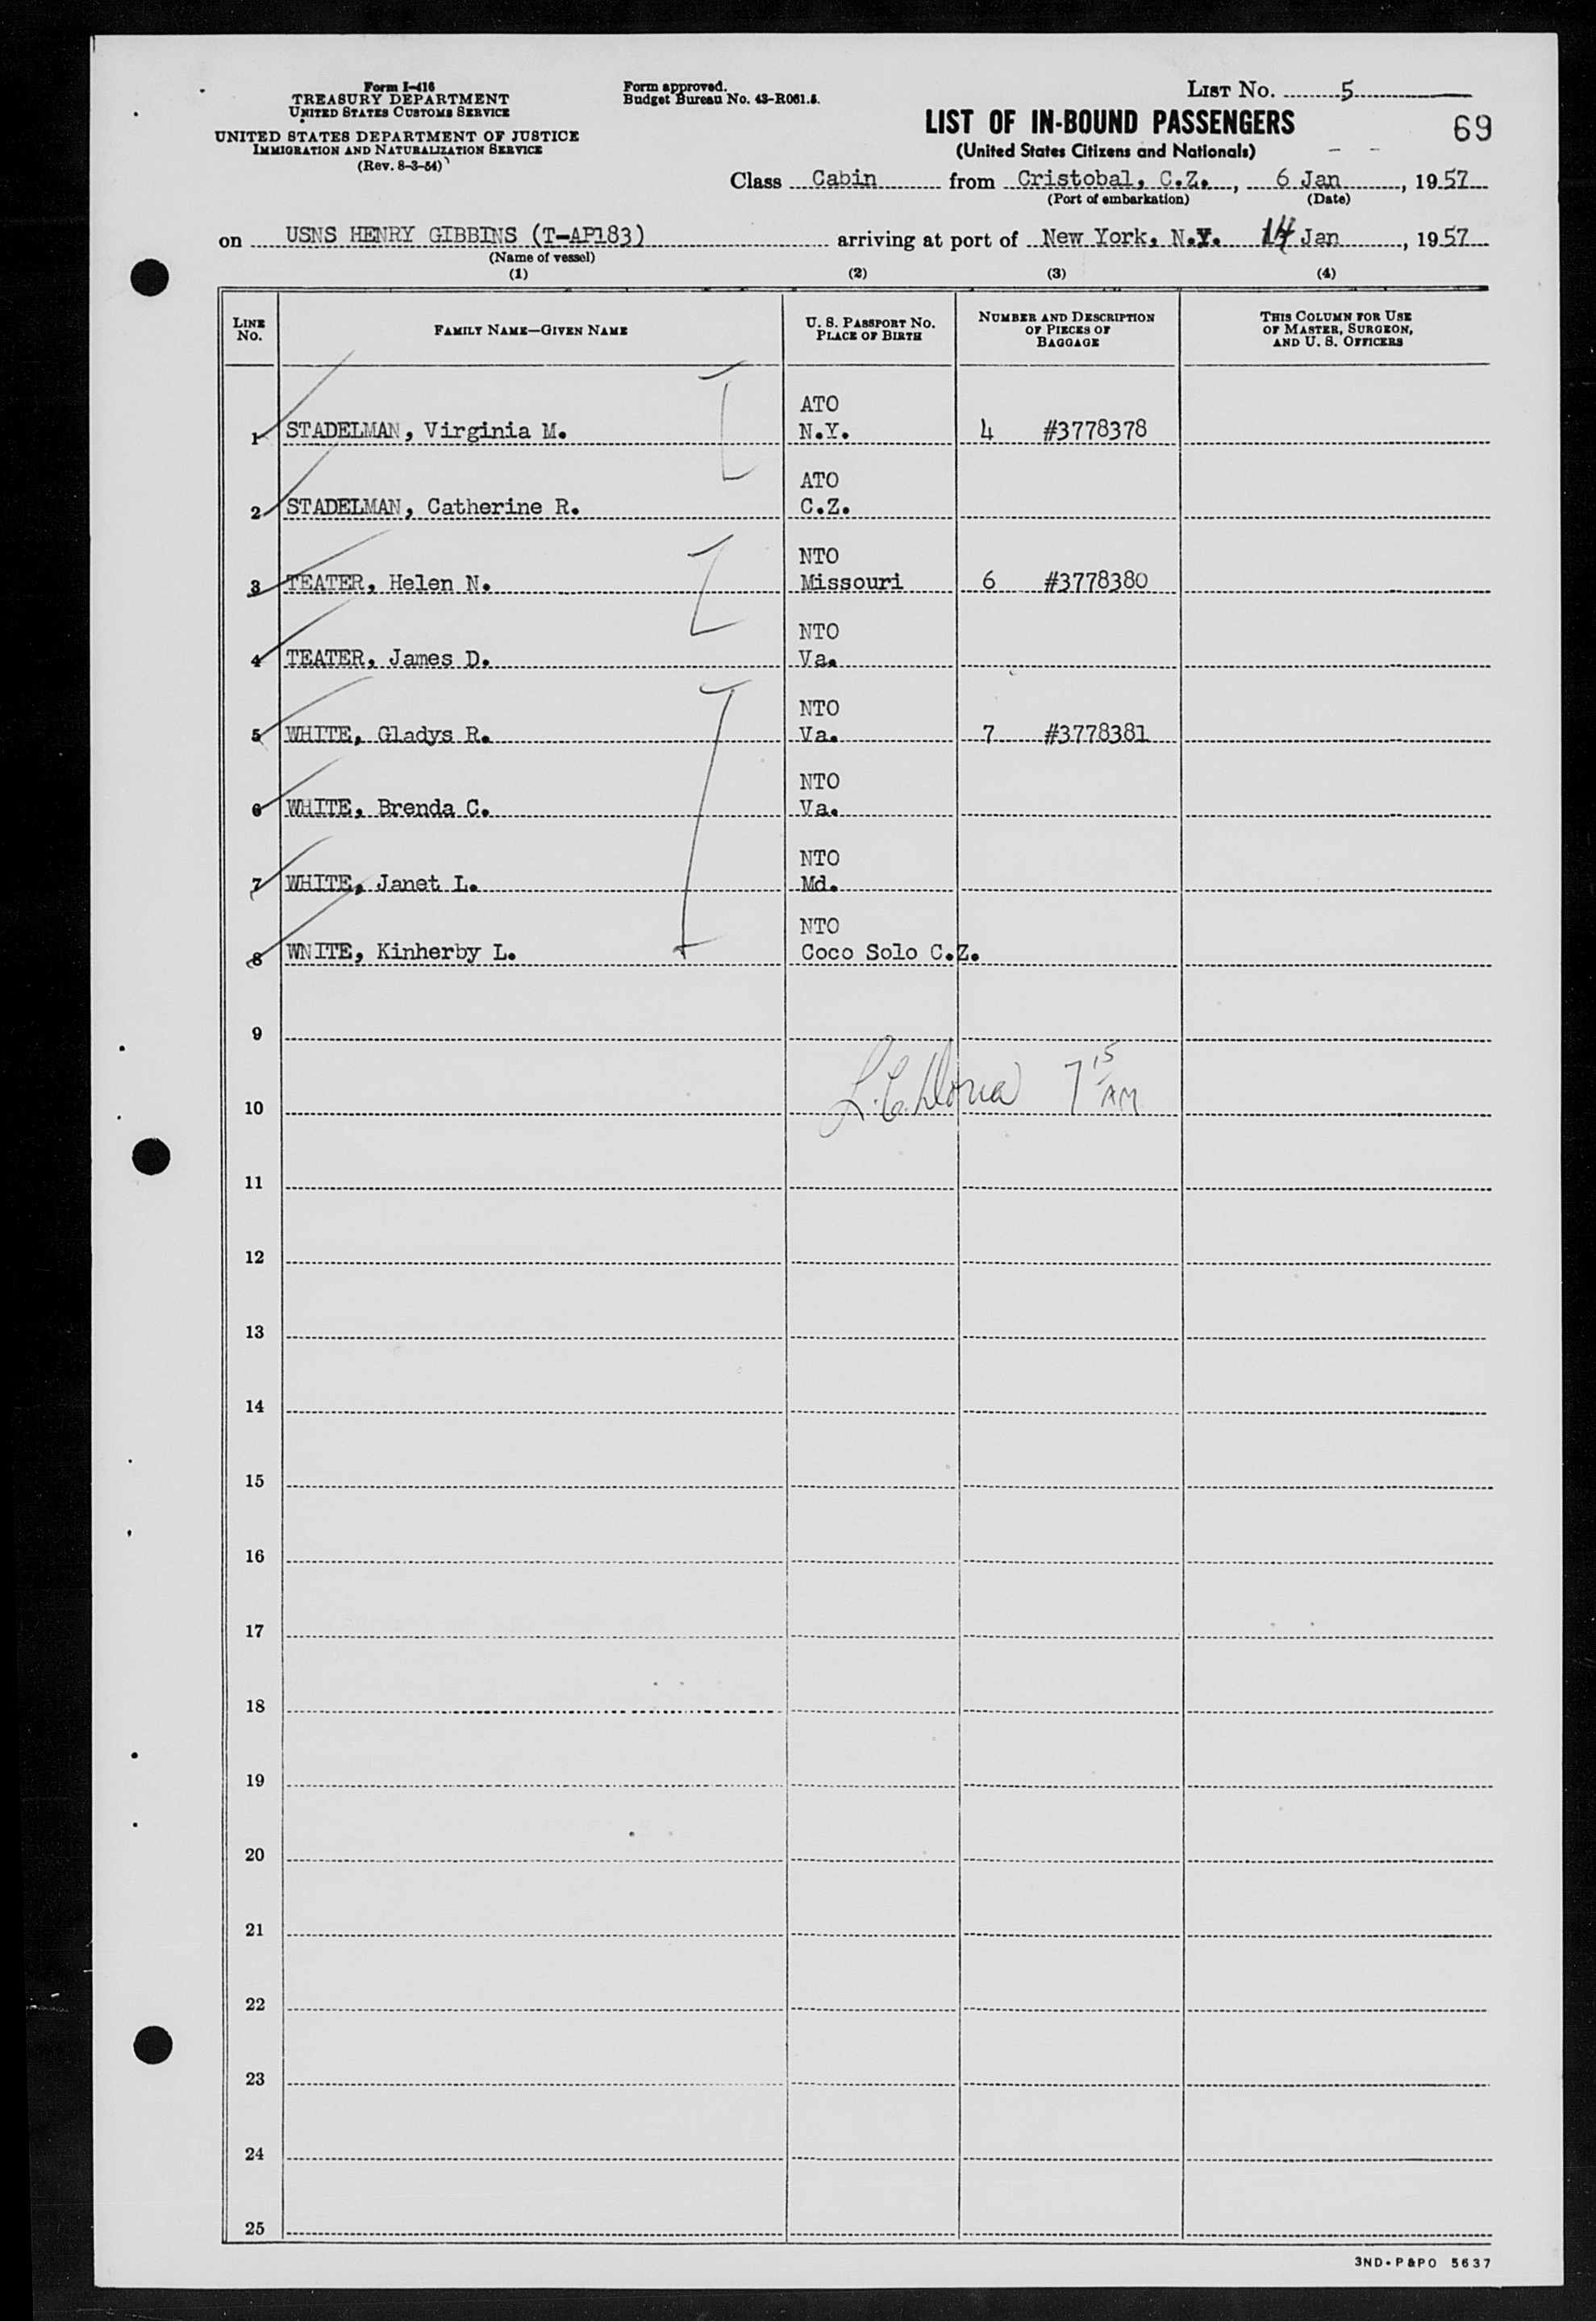 Form I-416
TREASURY DEPARTMENT
UNITED STATES CUSTOMS SERVICE
UNITED STATES DEPARTMENT OF JUSTICE
IMMIGRATION AND NATURALIZATION SERVICE
(Rev. 8-3-54)
Form approved.
Budget Bureau No. 43-R061.5.
LIST NO. 5
LIST OF IN-BOUND PASSENGERS
69
(United States Citizens and Nationals)
Class Cabin from Cristobal, C.Z., 6 Jan, 1957
(Port of embarkation) (Date)
on USNS HENRY GIBBINS (T-AP183) arriving at port of New York, N.Y. 14 Jan, 1957
(Name of vessel)
(1) (2) (3) (4)
LINE NO. FAMILY NAME—GIVEN NAME U. S. PASSPORT NO. PLACE OF BIRTH NUMBER AND DESCRIPTION OF PIECES OF BAGGAGE THIS COLUMN FOR USE OF MASTER, SURGEON, AND U. S. OFFICERS
ATO
1 STADELMAN, Virginia M. N.Y. 4 #3778378
ATO
2 STADELMAN, Catherine R. C.Z.
NTO
3 TEATER, Helen N. Missouri 6 #3778380
NTO
4 TEATER, James D. Va.
NTO
5 WHITE, Gladys R. Va. 7 #3778381
NTO
6 WHITE, Brenda C. Va.
NTO
7 WHITE, Janet L. Md.
NTO
8 WNITE, Kinherby L. Coco Solo C.Z.
9
7 15 AM
10
11
12
13
14
15
16
17
18
19
20
21
22
23
24
25
3ND-P&PO 5637